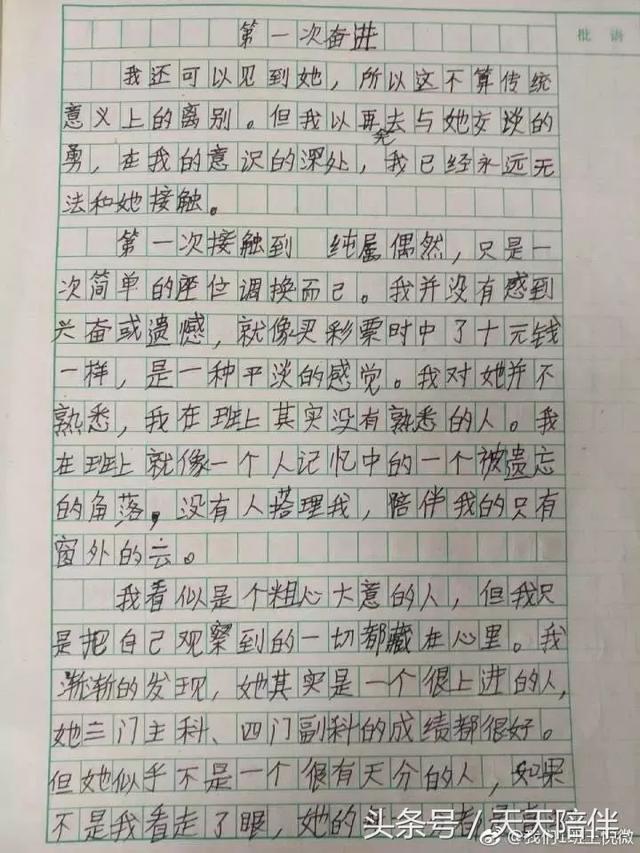 第一次奋进
批语
我还可以见到她，所以这不算传统
意义上的离别。但我以再去与她交谈的
勇，在我的意识的深处，我已经永远无
法和她接触。
第一次接触到 纯属偶然，只是一
次简单的座位调换而己。我并没有感到
兴奋或遗憾，就像买彩票时中了十元钱
一样，是一种平淡的感觉。我对她并不
熟悉，我在班上其实没有熟悉的人。我
在班上就像一个人记忆中的一个被遗忘
的角落，没有人搭理我，陪伴我的只有
窗外的云。
我看似是个粗心大意的人，但我只
是把自己观察到的一切都藏在心里。我
渐渐的发现，她其实是一个很上进的人，
她三门主科、四门副科的成绩都很好。
但她似乎不是一个很有天分的人，如果
不是我看走了眼，她的
头条号/天天陪伴